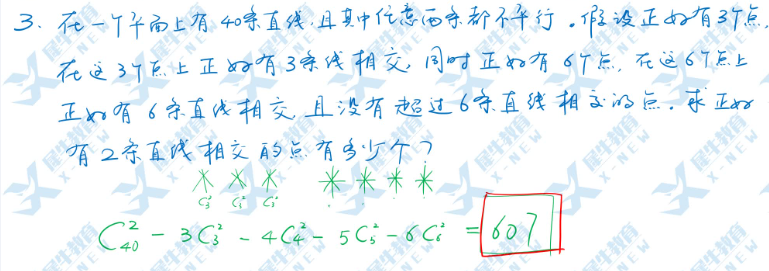 3. 在一个平面上有40条直线,且其中任意两条都不平行。假设正好有3个点,
在这3个点上正好有3条线相交,同时正好有6个点,在这6个点上
正好有6条直线相交,且没有超过6条直线相交的点。求正好
有2条直线相交的点有多少个?
C₃² C₃² C₃²
C₄₀² - 3C₃² - 4C₄² - 5C₅² - 6C₆² = 607
犀牛教育
X-NEW